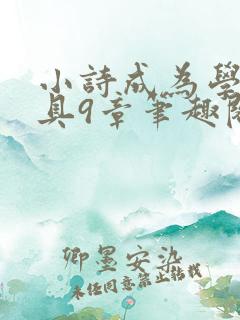 小詩成為學
具9章筆趣閣
卿墨安染
未經同意禁止轉載